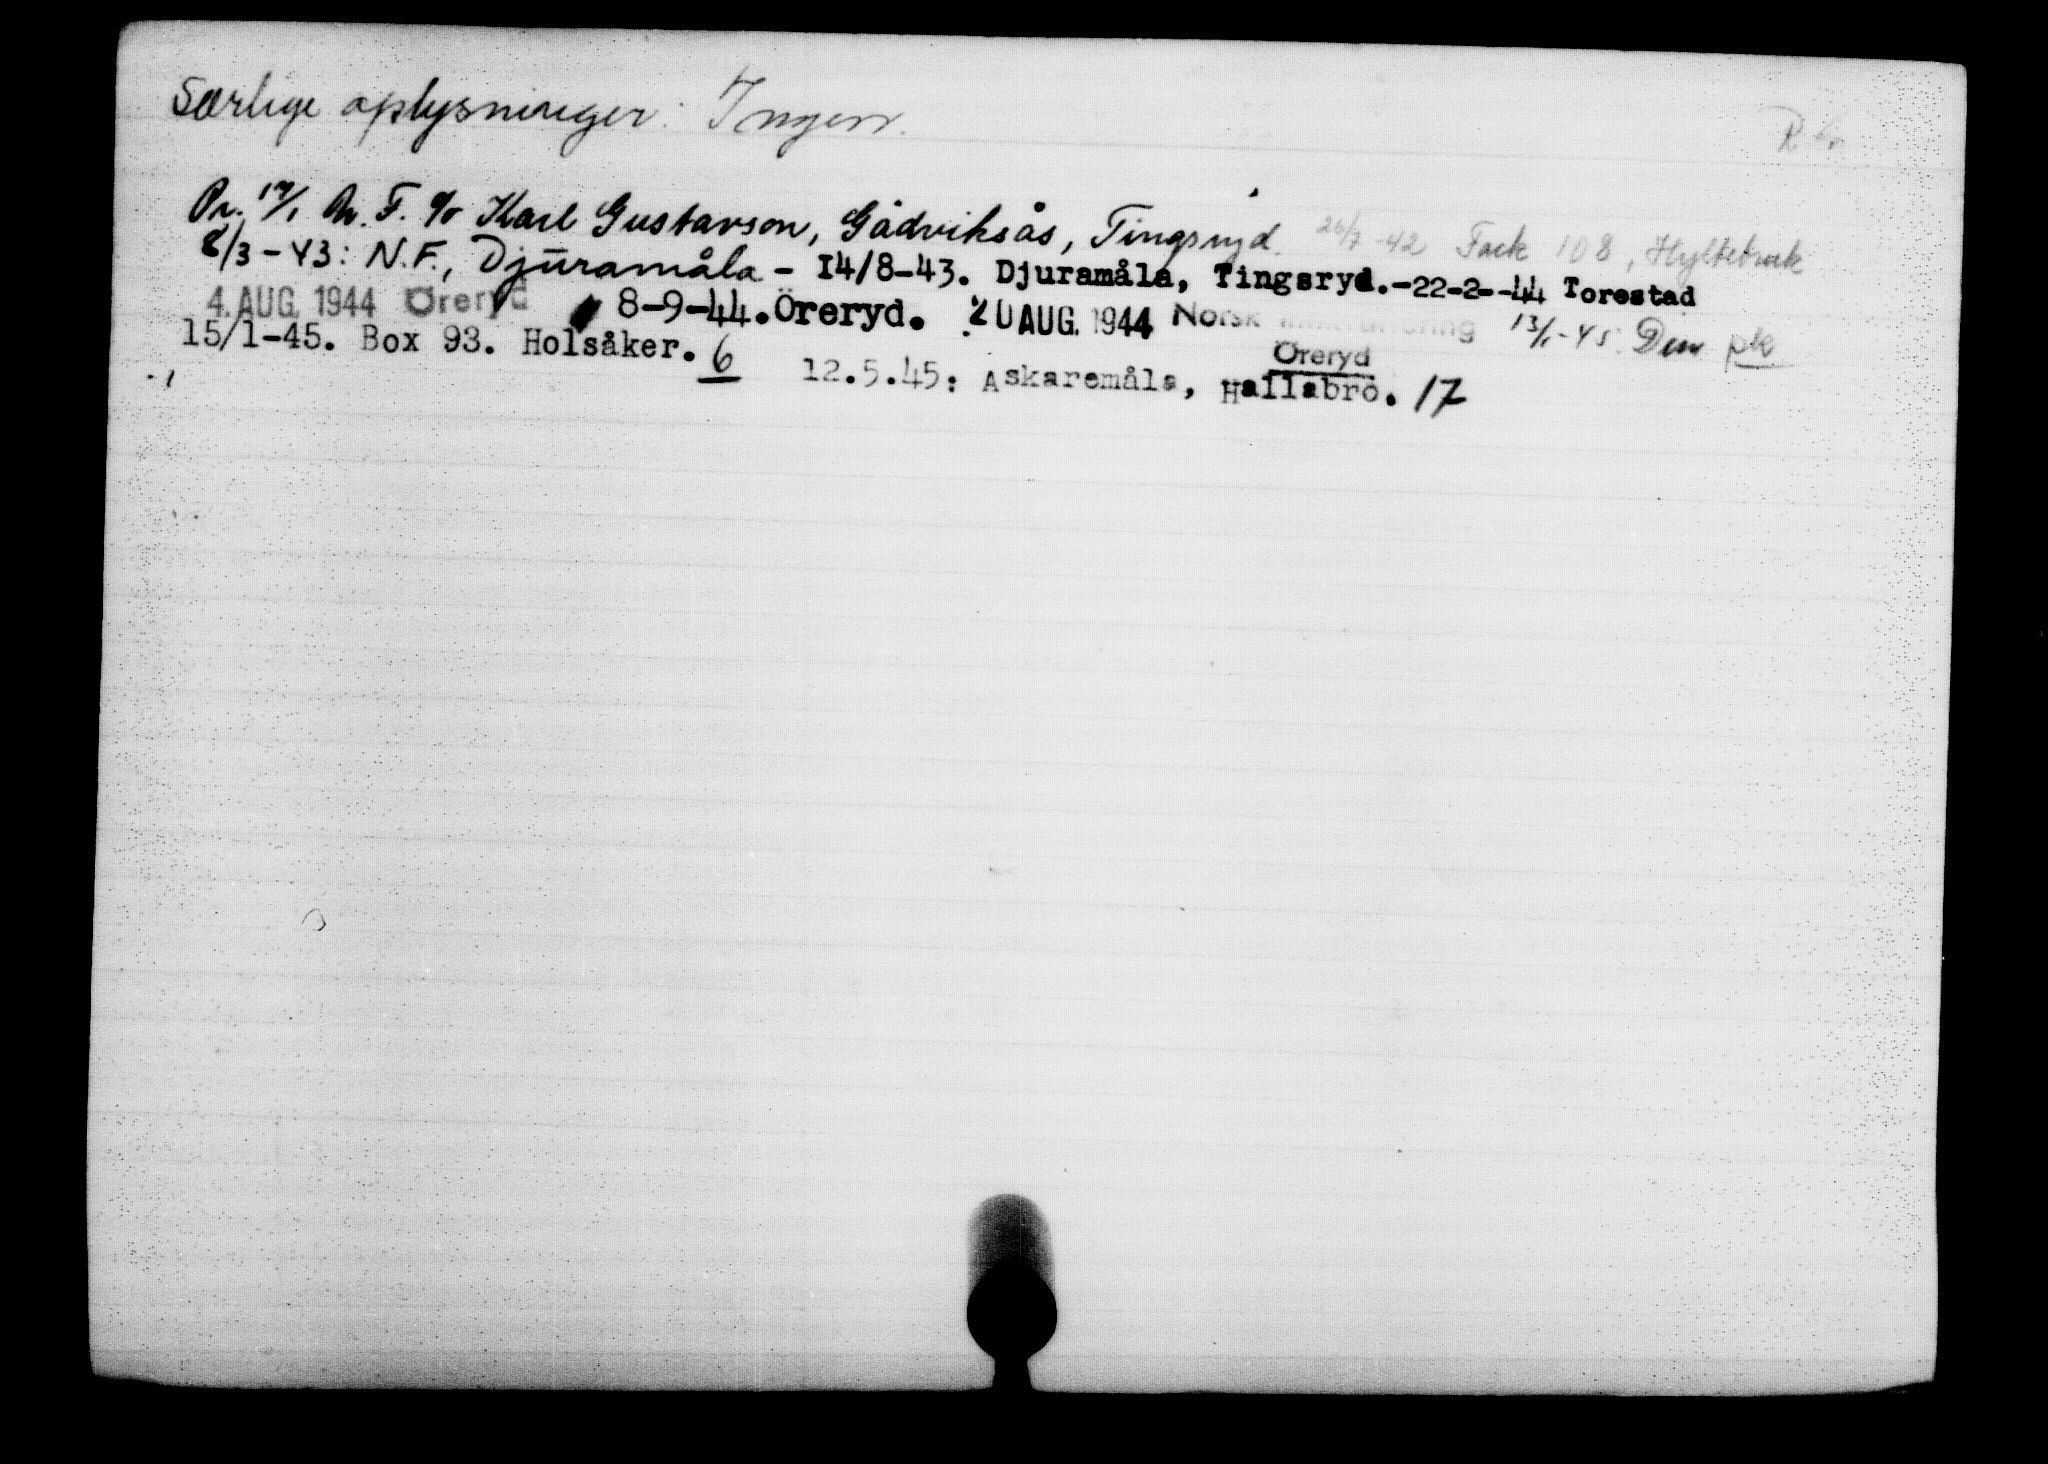 Særlige oplysninger: Ingen.
Pr. 17/1 N.F. c/o Karl Gustavson, Gådviksås, Tingsryd. 26/7-42 Fack 108, Hyltebruk
8/3-43: N.F., Djuramåla - 14/8-43. Djuramåla, Tingsryd.-22-2--44 Torestad
4. AUG. 1944 Öreryd 8-9-44. Öreryd. 20 AUG. 1944 Norsk 13/1-45
Öreryd
15/1-45. Box 93. Holsåker. 6 12.5.45: Askaremåla, Hallabro. 17